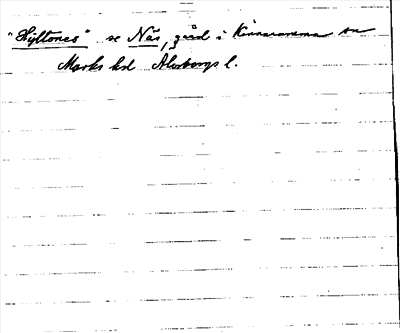 "Hyltenäs" se Näs, gård i Kinnarumma sn
Marks hd Älvsborgs l.